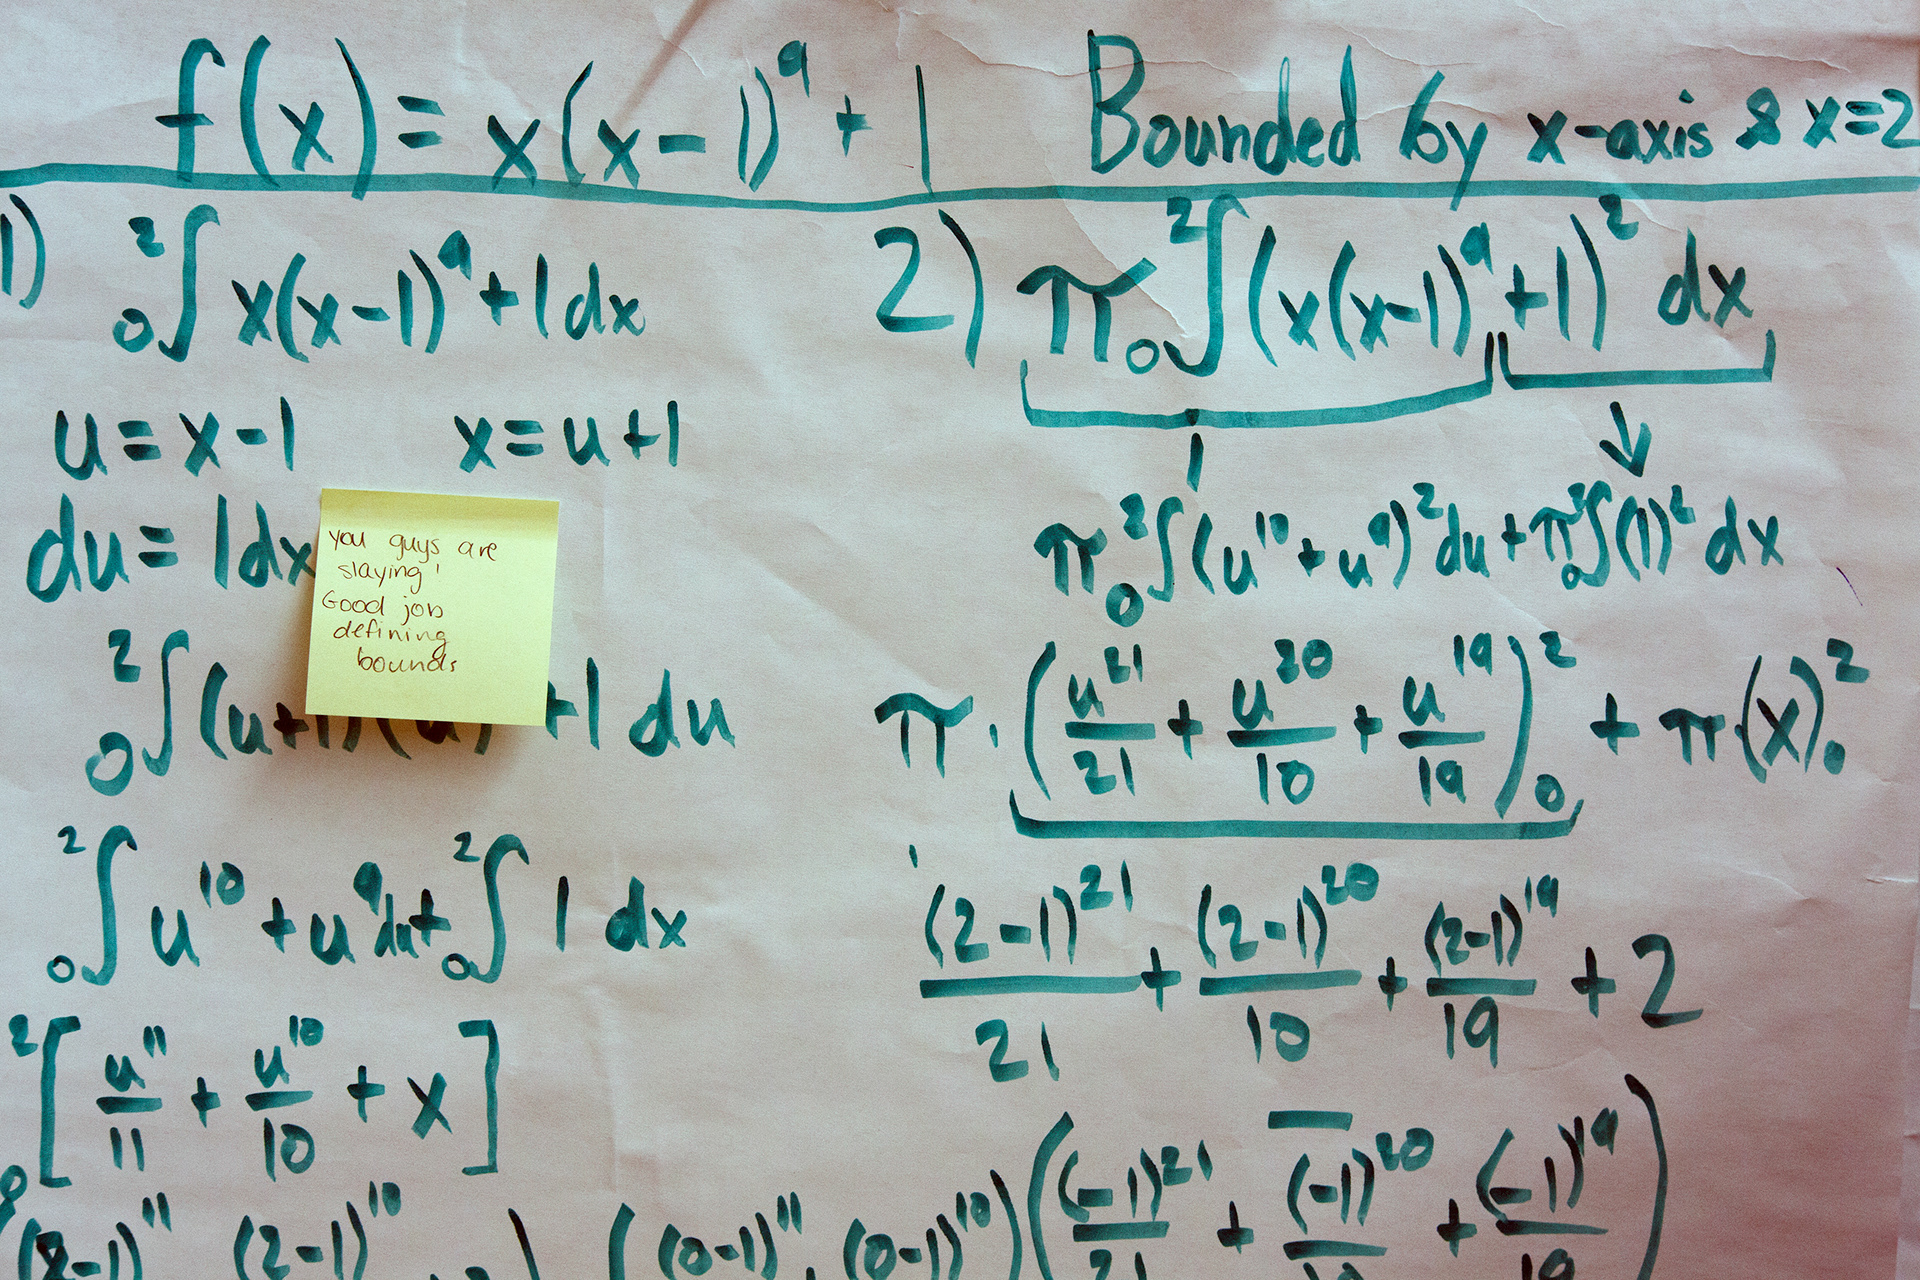 f(x) = x(x-1)⁹ + 1 Bounded by x-axis & x=2
1) ²₀∫ x(x-1)⁹+1dx
u = x-1 x = u+1
du = 1dx
you guys are
slaying!
Good job
defining
bounds
²₀∫(u+1)(u) +1 du
²₀∫ u¹⁰ + u⁹du + ²₀∫ 1 dx
²₀[u¹¹/11 + u¹⁰/10 + x]
(2-1)¹¹ (2-1)¹⁰ ) ( (0-1)¹¹ (0-1)¹⁰ )
2) π ²₀∫(x(x-1)⁹+1)² dx
π ²₀∫(u¹⁰+u⁹)²du + π ²₀∫(1)² dx
π · (u²¹/21 + u²⁰/10 + u¹⁹/19)²₀ + π(x)²₀
(2-1)²¹/21 + (2-1)²⁰/10 + (2-1)¹⁹/19 + 2
—
((-1)²¹/21 + (-1)²⁰/10 + (-1)¹⁹/19)